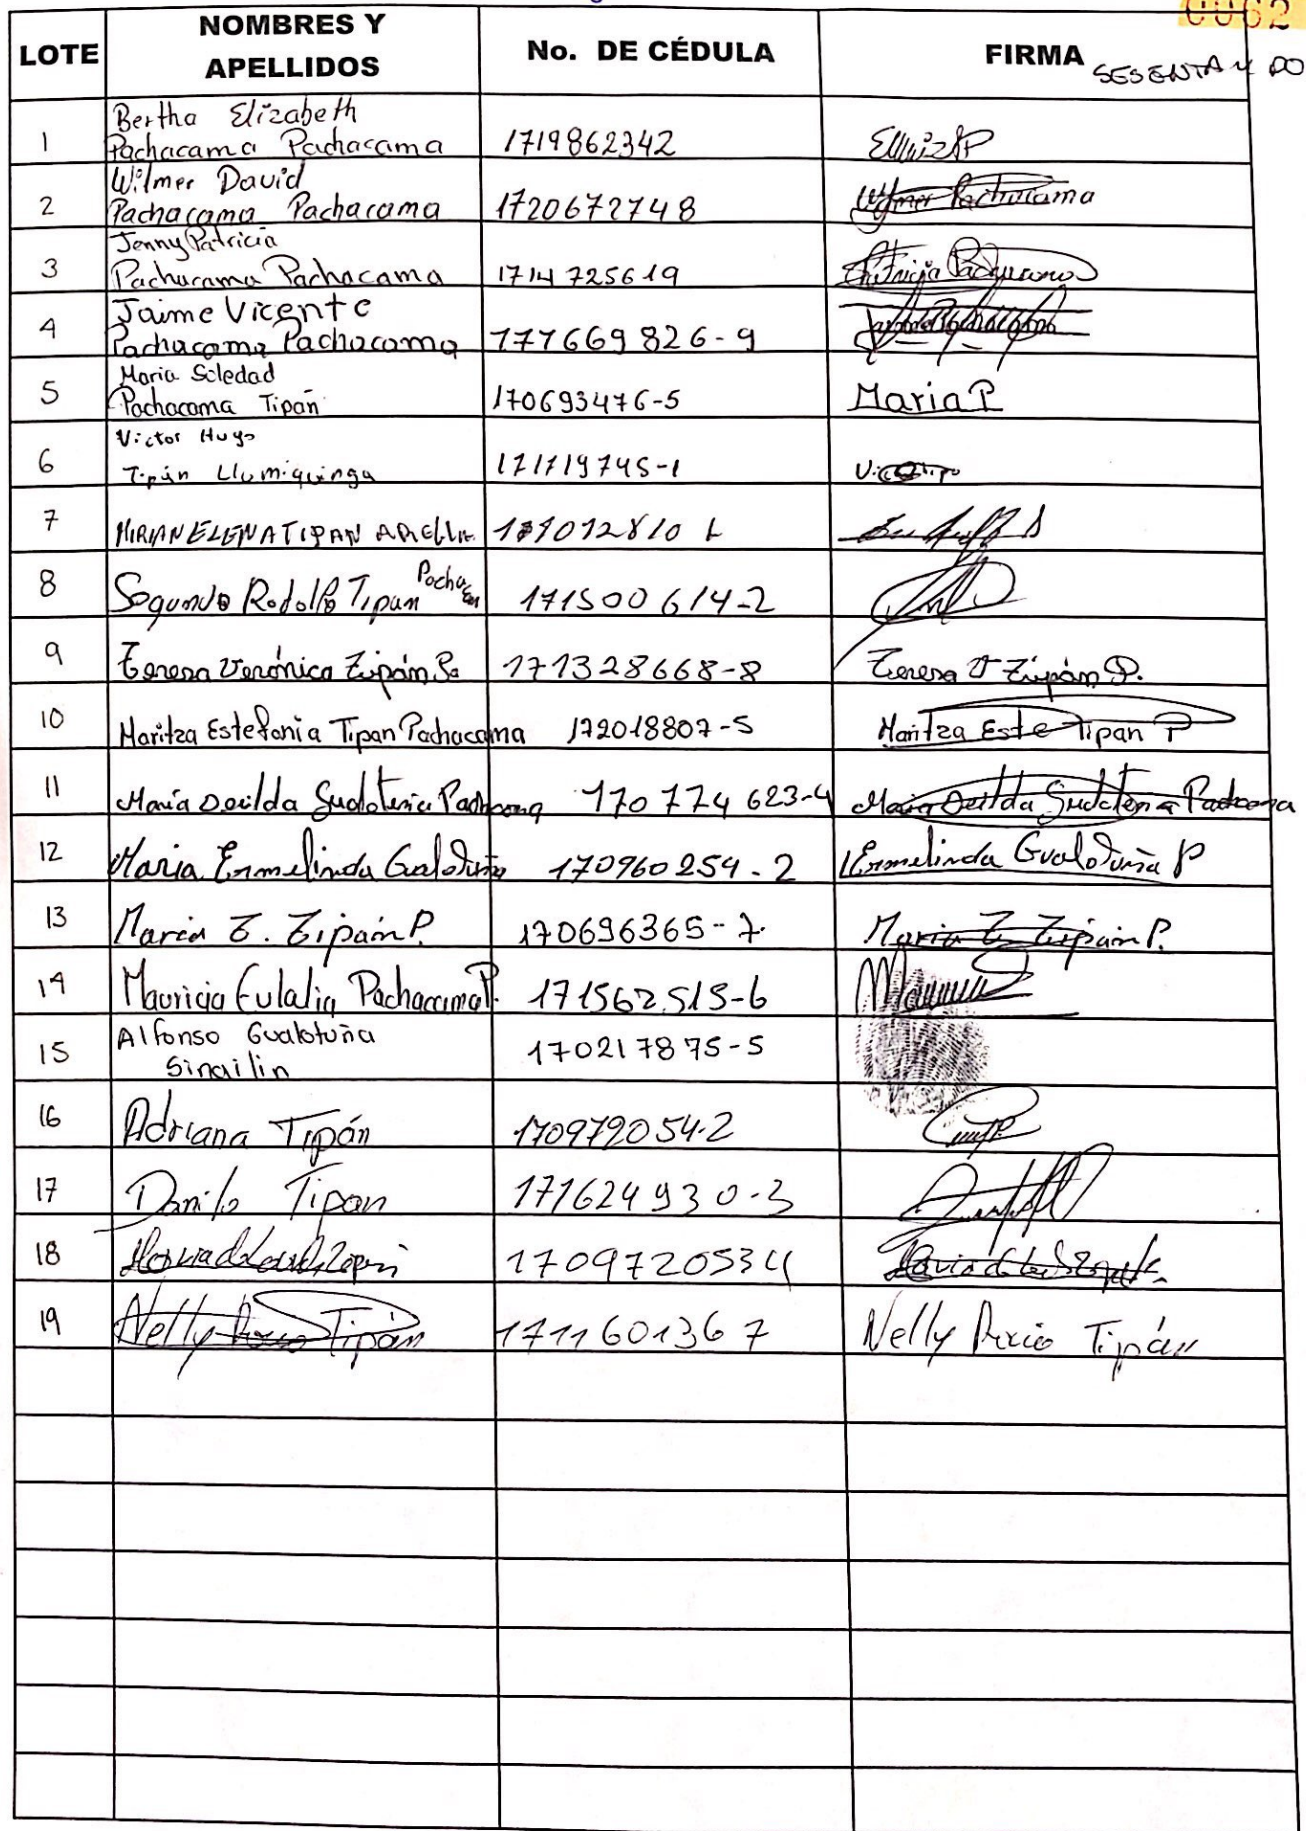 0062
SESENTA Y DO
LOTE NOMBRES Y APELLIDOS No. DE CÉDULA FIRMA
1 Bertha Elizabeth
Pachacama Pachacama 1719862342
2 Wilmer David
Pachacama Pachacama 1720672748 Wilmer Pachacama
3 Jenny Patricia
Pachacama Pachacama 1714725619 Patricia Pachacama
4 Jaime Vicente
Pachacama Pachacama 171669826-9
5 Maria Soledad
Pachacama Tipán 170693476-5 Maria P
6 Victor Hugo
Tipán Llumiquinga 171719745-1
7 MIRIAN ELENA TIPAN
8 Segundo Rodolfo Tipan 171500614-2
9 Teresa Verónica Tipán P. 171328668-8 Teresa V Tipán P.
10 Maritza Estefania Tipan Pachacama 172018807-5 Maritza Este Tipan P
11 Maria 170774623-4 Maria
12 Maria Ermelinda Gualotuña 170960254-2 Ermelinda Gualotuña P
13 Maria T. Tipán P. 170696365-7. Maria T. Tipán P.
14 Mauricia Eulalia Pachacama P. 171562515-6
15 Alfonso Gualotuña
Sinailin 170217875-5
16 Adriana Tipán 170979054-2
17 Danilo Tipan 171624930-3
18 1709720534
19 Nelly Tipán 1711601367 Nelly Tipán